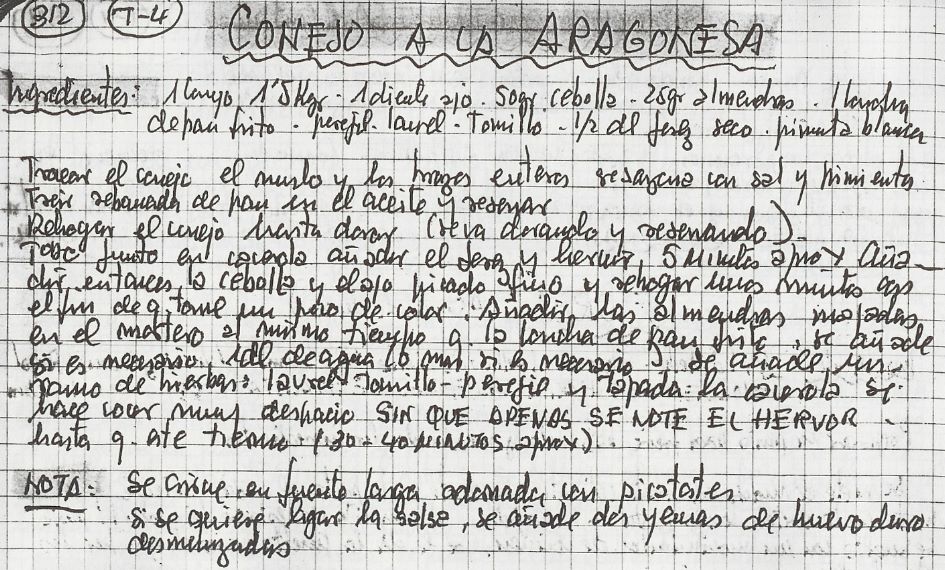 312 T-4
CONEJO A LA ARAGONESA
Ingredientes: 1 conejo 1'5 Kgr. 1 diente ajo. 50gr cebolla. 25gr almendras. 1 loncha
de pan frito. perejil. laurel. Tomillo. 1/2 dl Jerez seco. pimienta blanca
Trocear el conejo el muslo y los brazos enteros sazonar con sal y pimienta.
Freir rebanada de pan en el aceite y reservar
Rehogar el conejo hasta dorar (se va dorando y reservando).
Todo junto en cacerola añadir el Jerez y hervir, 5 Minutos aprox Aña-
dir, entonces, la cebolla y el ajo picado fino y rehogar unos minutos con
el fin de q. tome un poco de color. Añadir las almendras molidas
en el mortero al mismo tiempo q. la loncha de pan frito, se añade
si es necesario 1dl de agua (o mas si es necesario). se añade un
ramo de hierbas: laurel-Tomillo-perejil y Tapada la cacerola se
hace cocer muy despacio SIN QUE APENAS SE NOTE EL HERVOR
hasta q. este tierno (30-40 MINUTOS aprox)
NOTA: Se sirve en fuente larga adornada con picatostes.
si se quiere ligar la salsa, se añade dos yemas de huevo duro
desmenuzadas